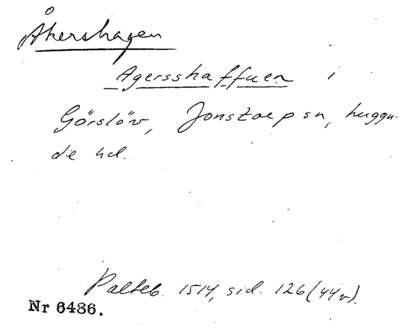 Åkershagen
Agersshaffuen i
Görslöv, Jonstorp sn, huggu-
de hd.
Palteb. 1514, sid. 126 (44v).
Nr 6486.